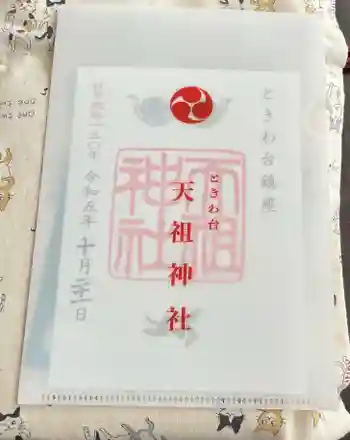 ときわ台鎮座
ときわ台
天祖神社
天祖
神社
令和五年十月二十一日